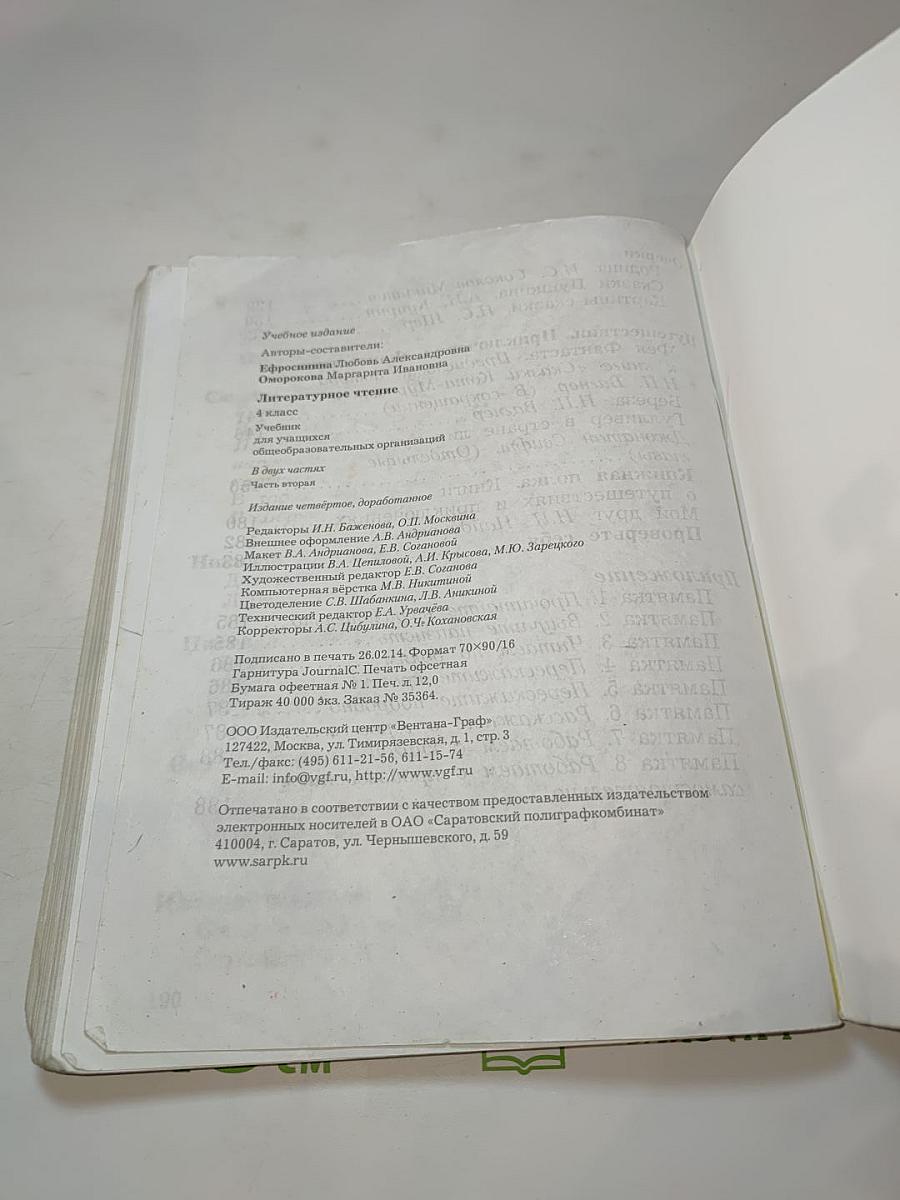 Учебное издание
Авторы-составители:
Ефросинина Любовь Александровна
Оморокова Маргарита Ивановна
Литературное чтение
4 класс
Учебник
для учащихся
общеобразовательных организаций
В двух частях
Часть вторая
Издание четвёртое, доработанное
Редакторы И.Н. Баженова, О.П. Москвина
Внешнее оформление А.В. Андрианова
Макет В.А. Андрианова, Е.В. Согановой
Иллюстрации В.А. Цепиловой, А.И. Крысова, М.Ю. Зарецкого
Художественный редактор Е.В. Соганова
Компьютерная вёрстка М.В. Никитиной
Цветоделение С.В. Шабанкина, Л.В. Аникиной
Технический редактор Е.А. Урвачёва
Корректоры А.С. Цибулина, О.Ч. Кохановская
Подписано в печать 26.02.14. Формат 70×90/16
Гарнитура JournalC. Печать офсетная
Бумага офсетная № 1. Печ. л. 12,0
Тираж 40 000 экз. Заказ № 35364.
ООО Издательский центр «Вентана-Граф»
127422, Москва, ул. Тимирязевская, д. 1, стр. 3
Тел./факс: (495) 611-21-56, 611-15-74
E-mail: info@vgf.ru, http://www.vgf.ru
Отпечатано в соответствии с качеством предоставленных издательством
электронных носителей в ОАО «Саратовский полиграфкомбинат»
410004, г. Саратов, ул. Чернышевского, д. 59
www.sarpk.ru
см